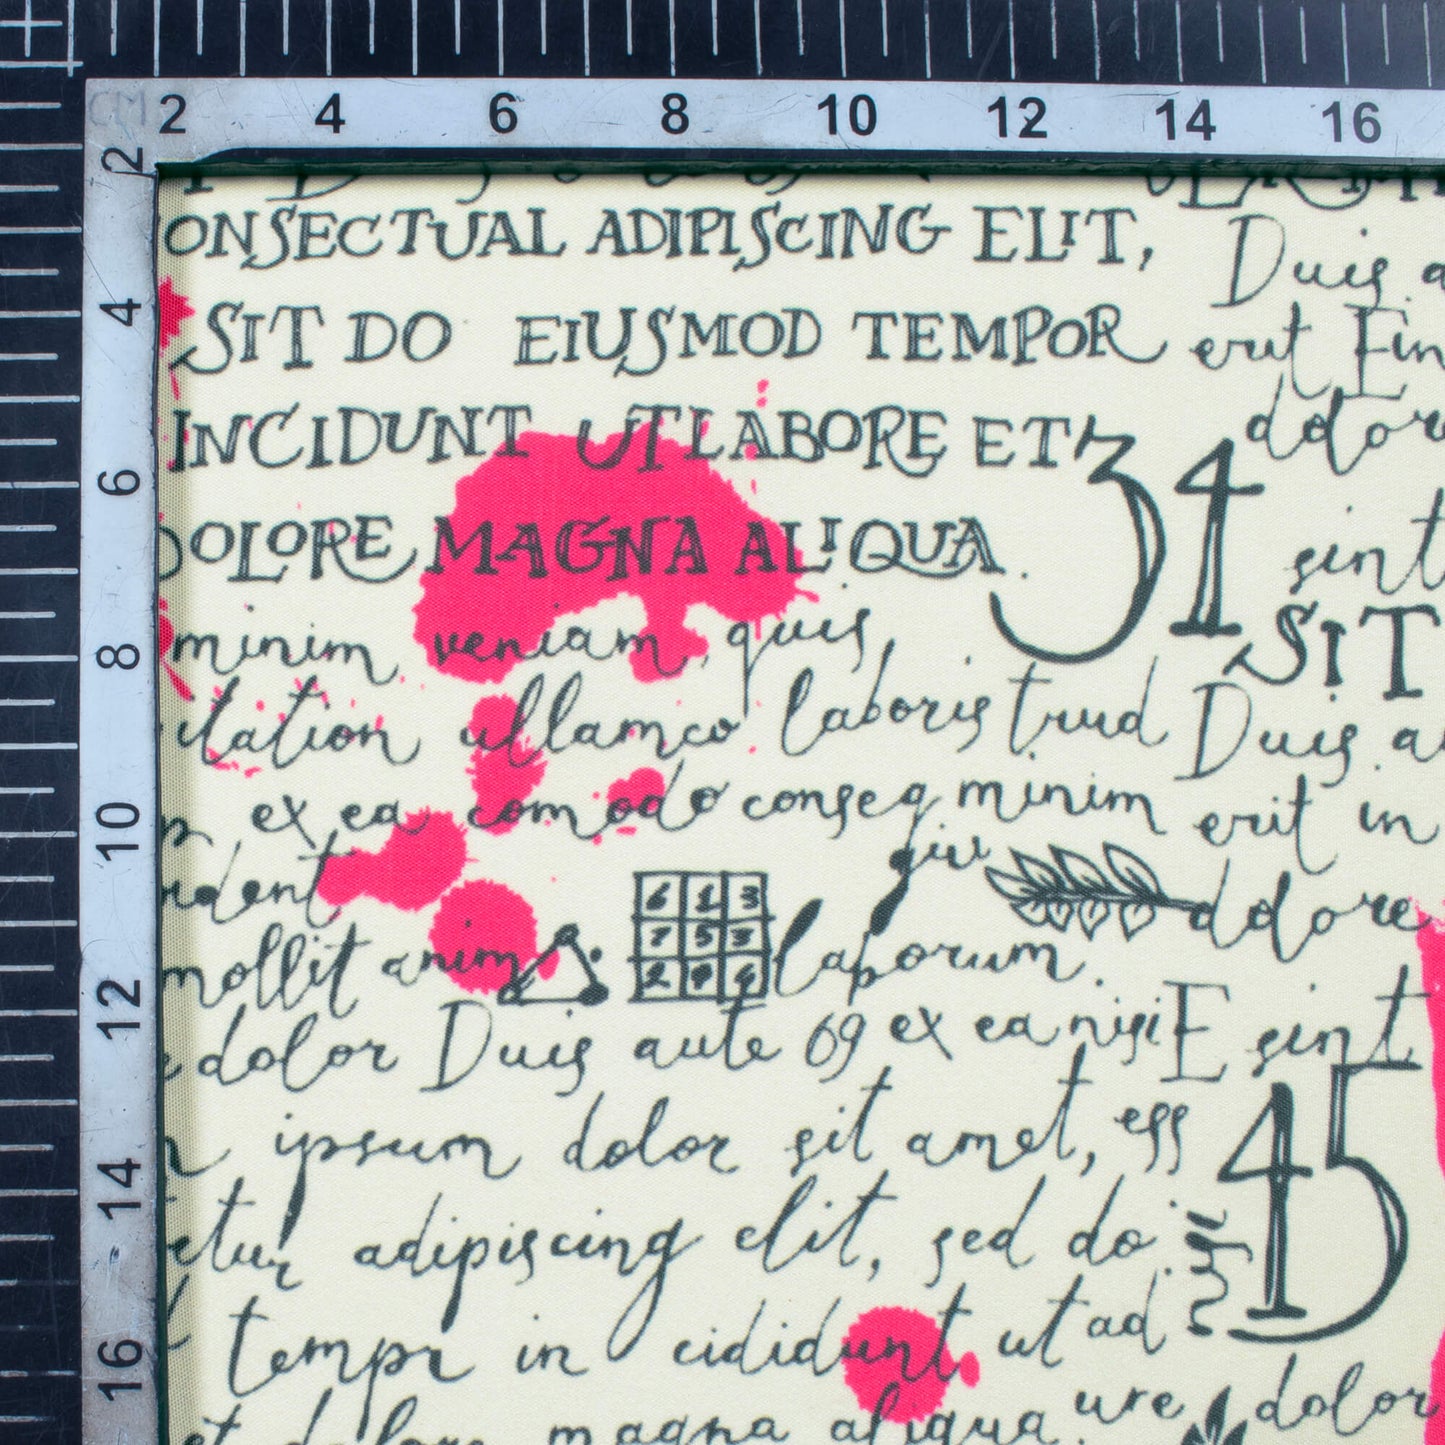 CM 2 4 6 8 10 12 14 16
2
4
6
8
10
12
14
16
ONSECTUAL ADIPISCING ELIT,
Duis a
SIT DO EIUSMOD TEMPOR
erit Ein
INCIDUNT UT LABORE ET
34
ddore
DOLORE MAGNA ALIQUA.
sint
minim veniam, quis,
SIT
itation ullamco laboris trud
Duis a
ex ea comodo conseq minim
erit in
qiu
ident
ddore
6 1 3
7 5 3
2 9 6
mollit anim laborum.
dolor Duis aute 69 ex ea nisi E sint
45
ipsum dolor sit amet, ess
etur adipiscing elit, sed do
tempr in cididunt ut ad
ure dolor
et dolore magna aliqua